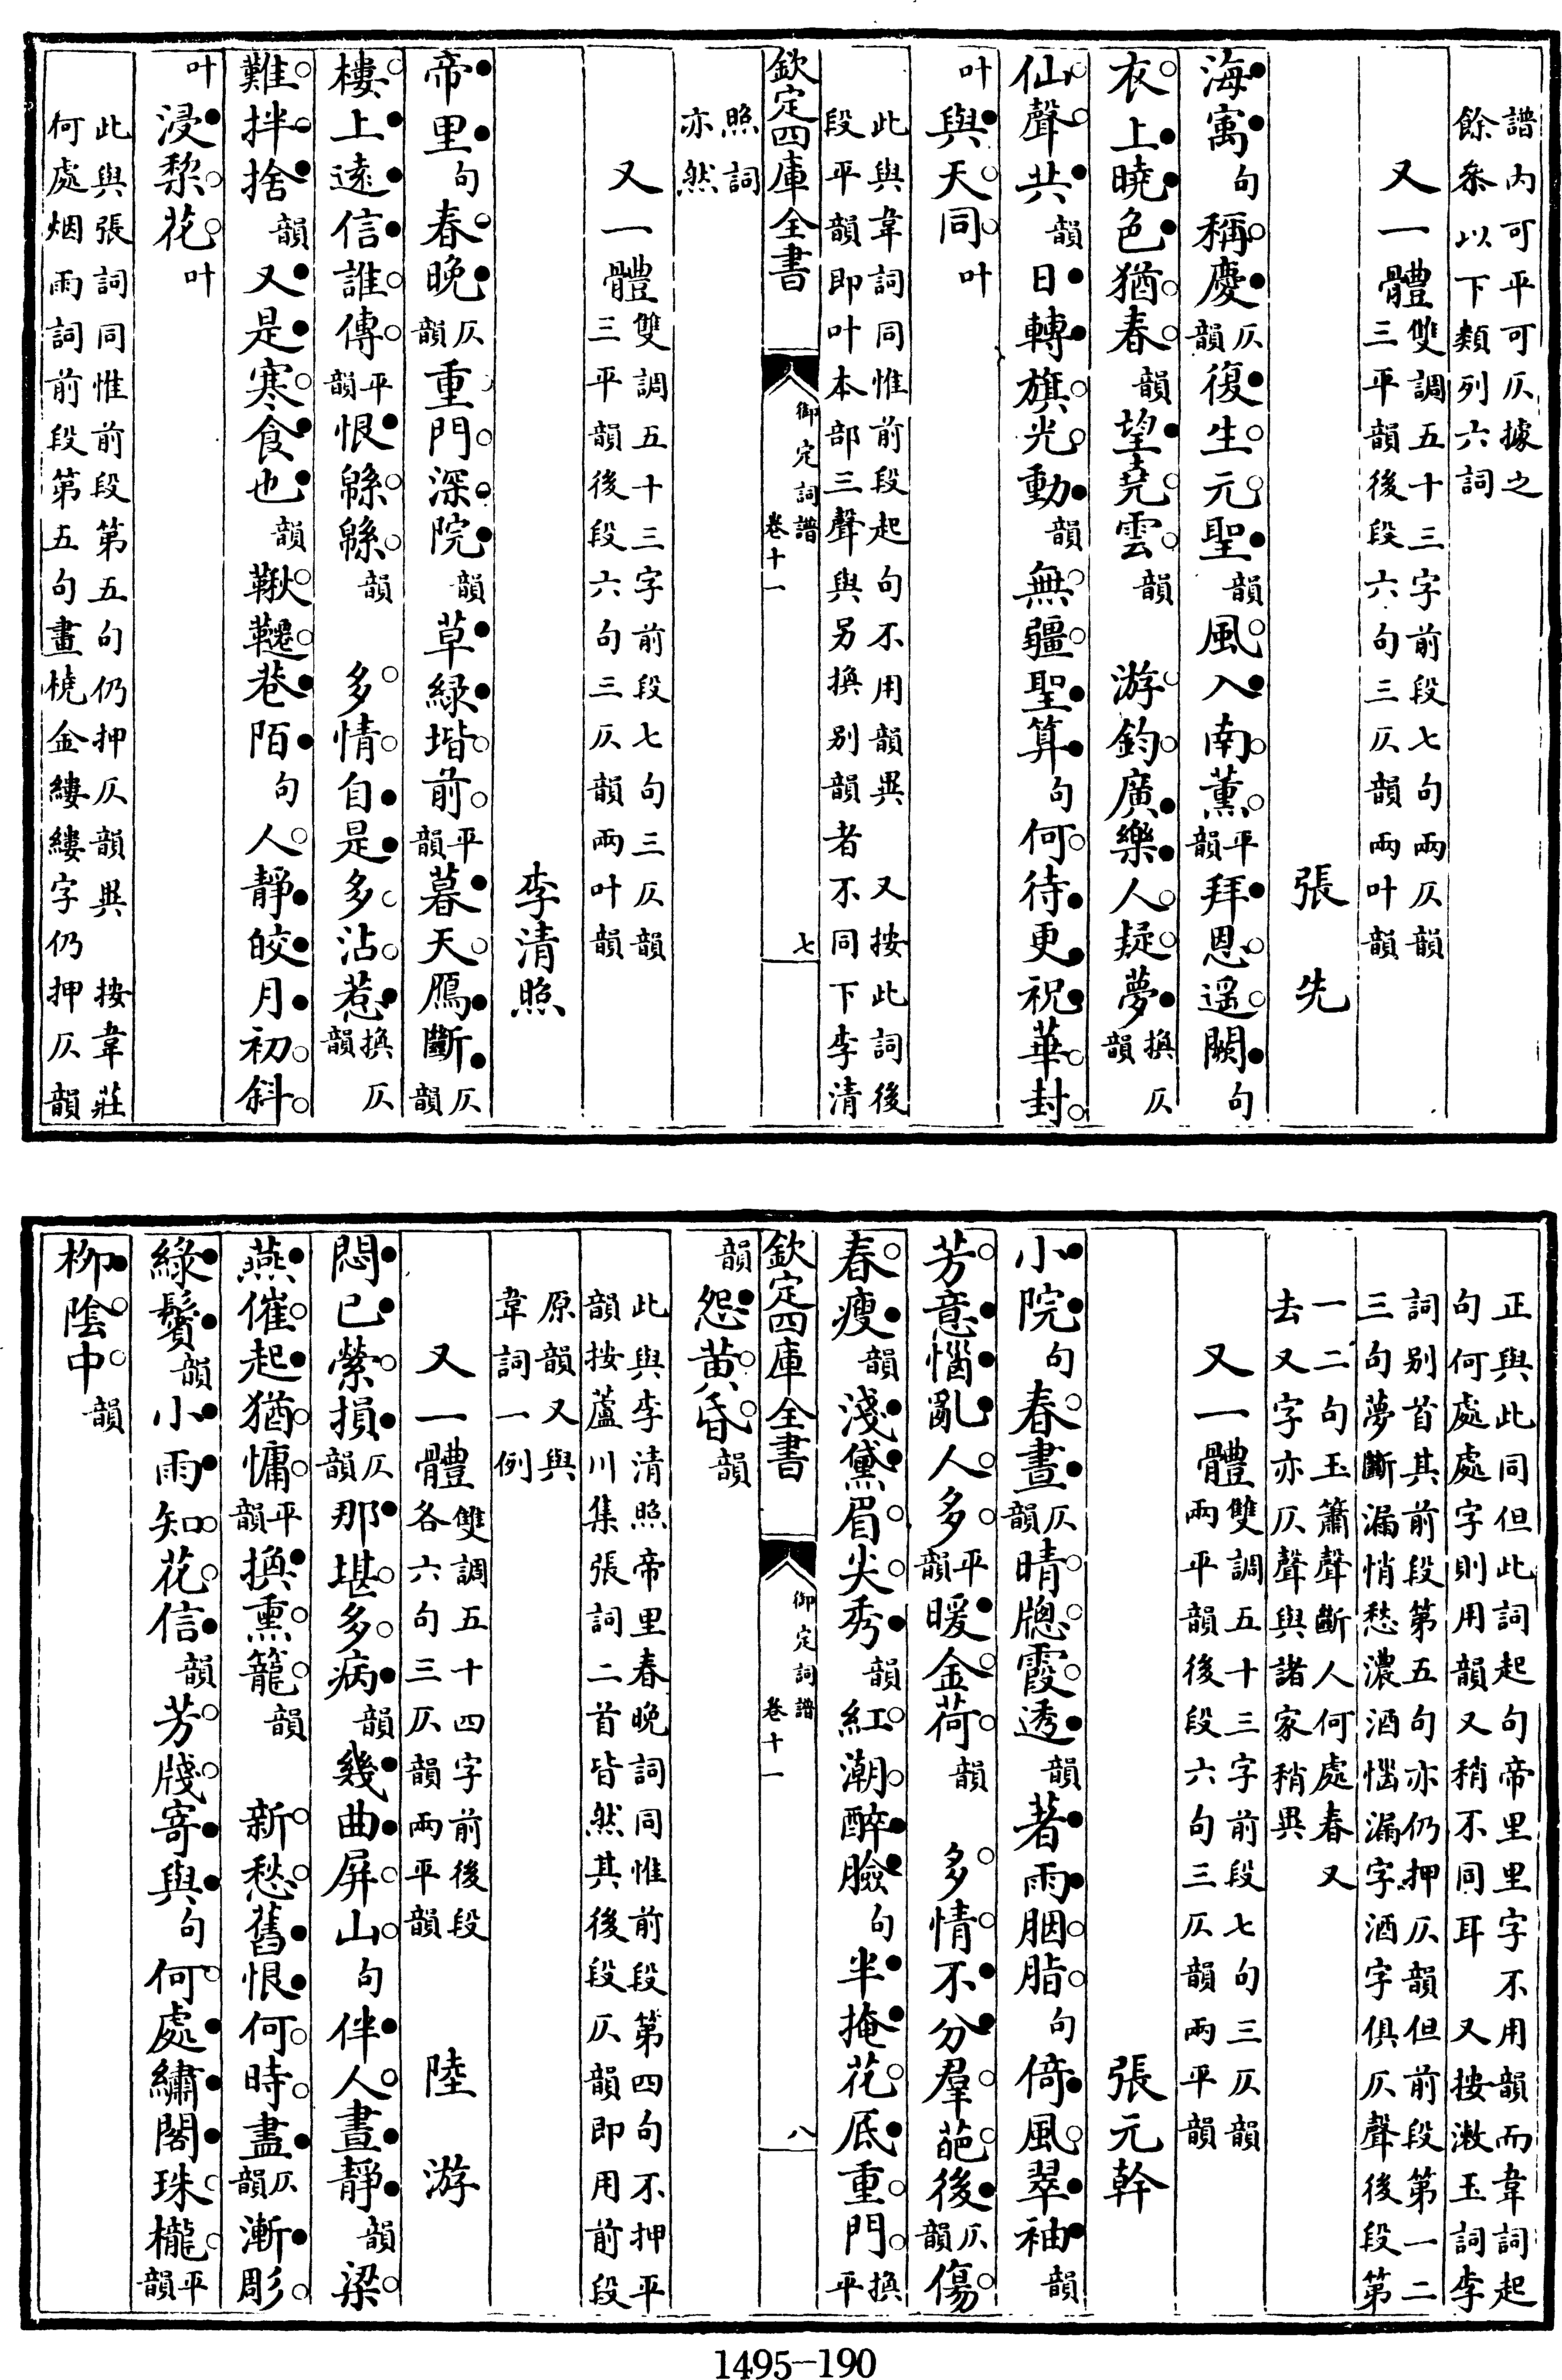 譜内可平可仄據之
餘叅以下類列六詞
又一體雙調五十三字前段七句兩仄韻三平韻後段六句三仄韻兩叶韻
張先
海寓句稱慶仄韻復生元聖韻風入南薫平韻拜恩遥闕句
衣上曉色猶春韻望堯雲韻　游鈞廣樂人疑夢換仄韻
仙聲共韻日轉旗光動韻無疆聖算句何待更祝華封
叶與天同叶
此與韋詞同惟前段起句不用韻異　又按此詞後
段平韻即叶本部三聲與另換别韻者不同下李清
欽定四庫全書　御定詞譜　卷十一　七
照詞
亦然
又一體雙調五十三字前段七句三仄韻三平韻後段六句三仄韻兩叶韻
李清照
帝里句春晚仄韻重門深院韻草緑堦前平韻暮天鴈斷仄韻
樓上遠信誰傳平韻恨緜緜韻　多情自是多沾惹換仄韻
難拌捨韻又是寒食也韻鞦韆巷陌句人靜皎月初斜
叶浸棃花叶
此與張詞同惟前段第五句仍押仄韻異　按韋莊
何處烟雨詞前段第五句畫橈金縷縷字仍押仄韻
正與此同但此詞起句帝里里字不用韻而韋詞起
句何處處字則用韻又稍不同耳　又按漱玉詞李
詞别首其前段第五句亦仍押仄韻但前段第一二
三句夢斷漏悄愁濃酒惱漏字酒字俱仄聲後段第
一二句玉簫聲斷人何處春又
去又字亦仄聲與諸家稍異
又一體雙調五十三字前段七句三仄韻兩平韻後段六句三仄韻兩平韻
張元幹
小院句春晝仄韻晴牕霞透韻著雨胭脂句倚風翠袖韻
芳意惱亂人多平韻暖金荷韻　多情不分羣葩後仄韻傷
春瘦韻淺黛眉尖秀韻紅潮醉臉句半掩花底重門換平
欽定四庫全書　御定詞譜　卷十一　八
韻怨黄昏韻
此與李清照帝里春晚詞同惟前段第四句不押平
韻按蘆川集張詞二首皆然其後段仄韻即用前段
原韻又與
韋詞一例
又一體雙調五十四字前後段各六句三仄韻兩平韻　陸游
悶已縈損仄韻那堪多病韻幾曲屏山句伴人晝靜韻梁
燕催起猶慵平韻換熏籠韻　新愁舊恨何時盡仄韻漸彫
緑鬢韻小雨知花信韻芳牋寄與句何處繡閣珠櫳平韻
栁陰中韻
1495—190